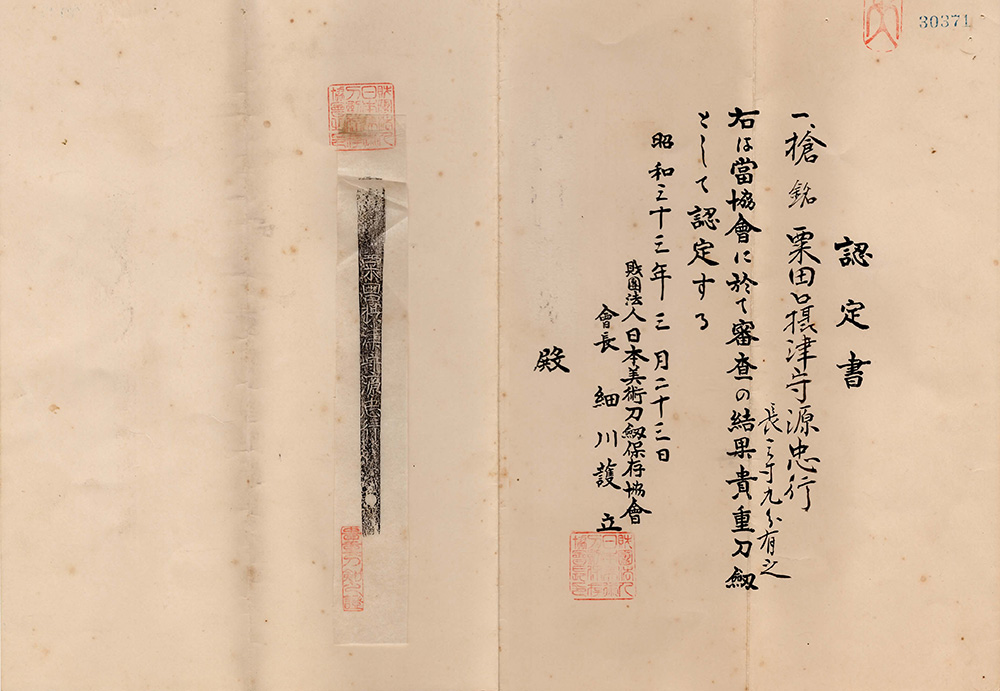 30371
認定書
一、槍 銘 粟田口摂津守源忠行
長三寸九分有之
右は當協會に於て審査の結果貴重刀劔
として認定する
昭和三十三年三月二十三日
財團法人日本美術刀劔保存協會
會長 細川護立
殿